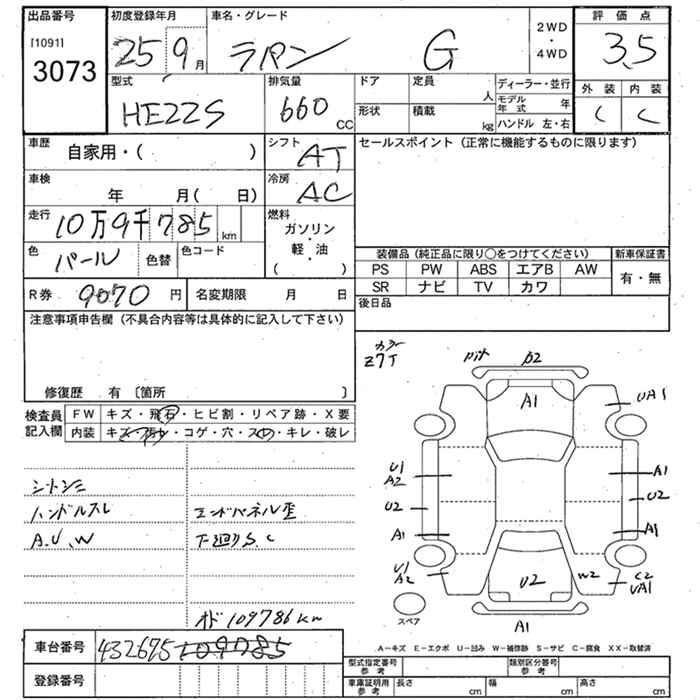 出品番号 初度登録年月 車名・グレード 2WD・4WD 評価点
[1091]
3073 25 9月 ラパン G 3.5
型式 排気量 ドア 定員 人 ディーラー・並行 外装 内装
HE22S 660 CC 形状 積載 kg モデル年式 年 C C
ハンドル 左・右
車歴 自家用・( ) シフト AT セールスポイント (正常に機能するものに限ります)
車検 年 月( 日) 冷房 AC
走行 10万9千785km 燃料 ガソリン・軽・油 ( )
色 パール 色替 色コード 装備品 (純正品に限り○をつけてください) 新車保証書
PS PW ABS エアB AW 有・無
R券 9070円 名変期限 月 日 SR ナビ TV カワ
後日品
注意事項申告欄 (不具合内容等は具体的に記入して下さい)
カラー
Z7T
修復歴 有 〔箇所 〕
検査員記入欄 FW キズ・飛石・ヒビ割・リペア跡・X要
内装 キズ・汚れ・コゲ・穴・スレ・キレ・破レ
シートシミ
ハンドルスレ エンドパネル歪
A.U.W 下廻りS.C
オド109786km
Pけキ B2
A1 UA1
U1 A2 A1
U2 U2
A1 A1
U1 A2 U2 W2 C2 UA1
A1
スペア
A−キズ E−エクボ U−凹み W−補修跡 S−サビ C−腐食 XX−取替済
車台番号 432695 109785
型式指定番号 参考 類別区分番号 参考
登録番号 車庫証明用 参考 長さ cm 幅 cm 高さ cm